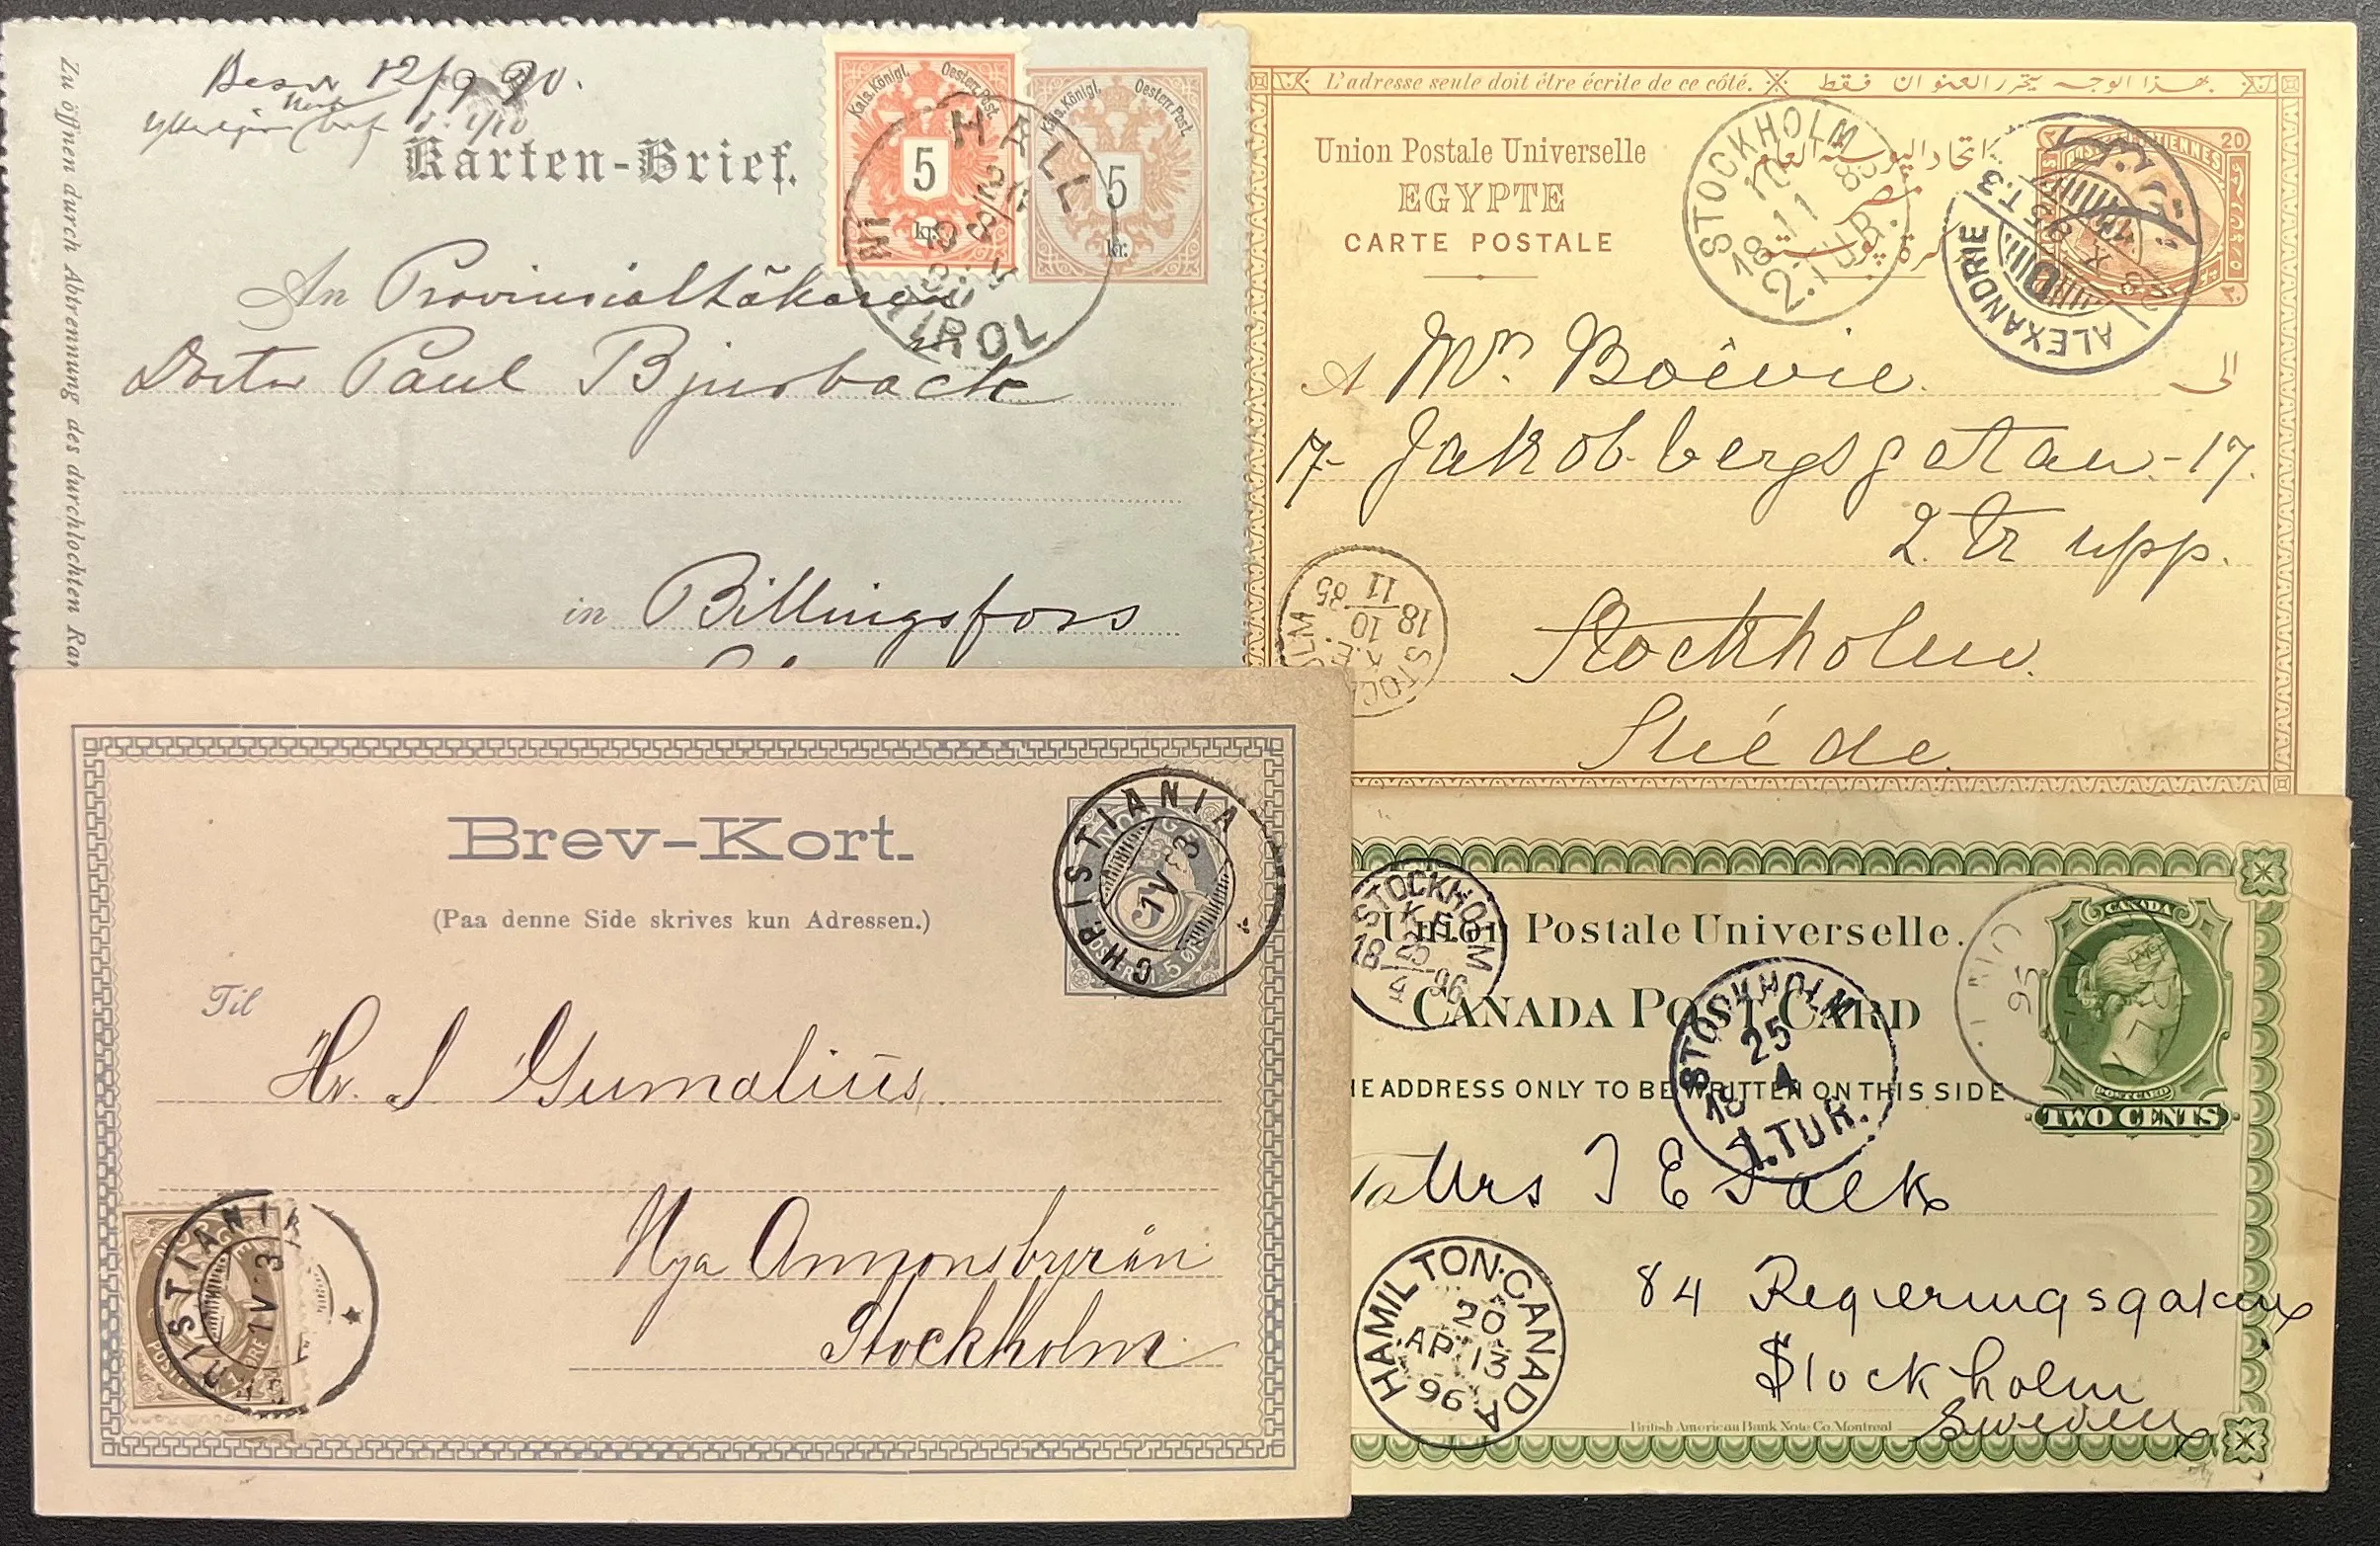 Zu öffnen durch Abtrennung des durchlochten Ran
12/9 90.
Karten-Brief.
Kais. Königl. Oesterr. Post.
5
kr.
Kais. Königl. Oesterr. Post.
5
kr.
HALL
IN
TIROL
An Provinsialläkaren
Doctor Paul Bjurback
in Billingsfors
L'adresse seule doit être écrite de ce côté. بهذا الوجه يتحرر العنوان فقط
Union Postale Universelle
اتحاد البوسته العام
EGYPTE
مصر
CARTE POSTALE
كرة بوسته
20
STOCKHOLM
18 11
2.TUR.
ALEXANDRIE
T.3
28 X 95
A Mr. Boëvie
الى
17- Jakobsbergsgatan-17.
2 tr upp.
Stockholm.
Suéde.
STOC LM
18 10 11 85
Brev-Kort.
(Paa denne Side skrives kun Adressen.)
NORGE
5
POSTFRIM 5 ØRE
CHRISTIANIA
1 V 83
Til
Hr. S Gumalius,
Nya Annonsbyrån
Stockholm
CHRISTIANIA
1 V 83
STOCKHOLM
K.E.
18 25 4 96
Union Postale Universelle.
CANADA POST CARD
HE ADDRESS ONLY TO BE WRITTEN ON THIS SIDE
CANADA
POST CARD
TWO CENTS
STOCKHOLM
25
4
18
1.TUR.
To Mrs J E Falk
84 Regeringsgatan
Stockholm
Sweden
HAMILTON·CANADA
20
AP 13
96
British American Bank Note Co. Montreal